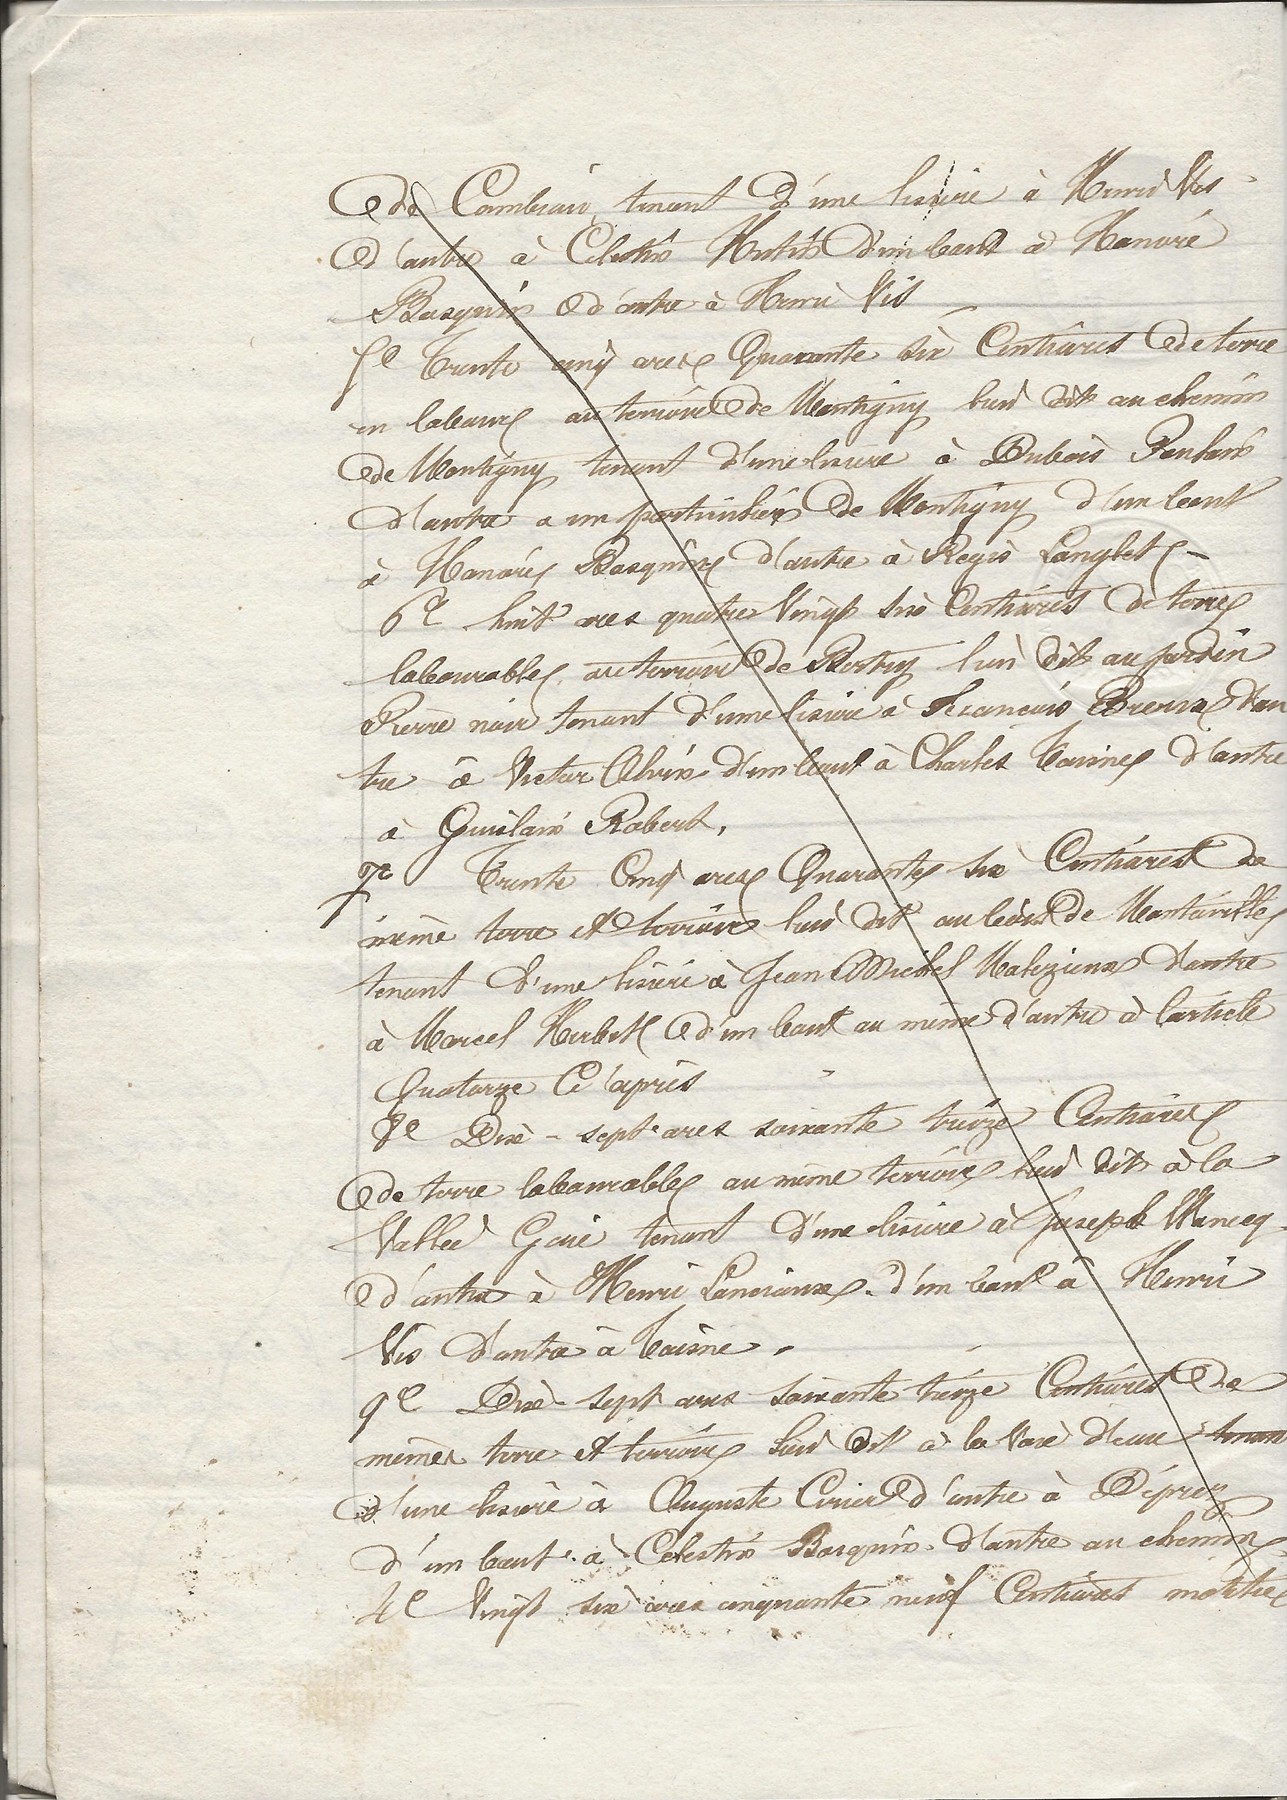 de Cambrai, tenant d'une lisiere à Henri Vis
d'autre à Célestin Hutin d'un bout à Honoré
Basquin & d'autre à Henri Vis
5e Trente cinq ares Quarante six Centiares de terre
en labour au terroir de Montigny lieu dit au chemin
de Montigny tenant d'une lisiere à Dubois
d'autre a un particulier de Montigny d'un bout
à Honoré Basquin d'autre à Régis Langlet
6e huit ares quatre Vingt six Centiares de terre
labourable au terroir de Bertry lieu dit au jardin
Pierre noir tenant d'une lisiere à Francois d'au
tre à Victor d'un bout à Charles Taisne d'autre
à Guislain Robert,
7e Trente Cinq ares Quarante six Centiares de
même terre et terroir lieu dit au de
tenant d'une lisiere à Jean Michel Malezieux d'autre
à Marcel d'un bout au même d'autre à l'article
Quatorze Ci après
8e Dix-sept ares soixante treize Centiares
de terre labourable au même terroir lieu dit à la
Vallée Gaie tenant d'une lisiere à Joseph
d'autre à Henri d'un bout à Henri
Vis d'autre à Taisne.
9e Dix-sept ares soixante treize Centiares de
même terre et terroir lieu dit à la d'eau tenan
d'une lisière à Auguste d'autre à Déprez
d'un bout à Celestin Basquin d'autre au chemin
4e Vingt six ares cinquante neuf Centiares